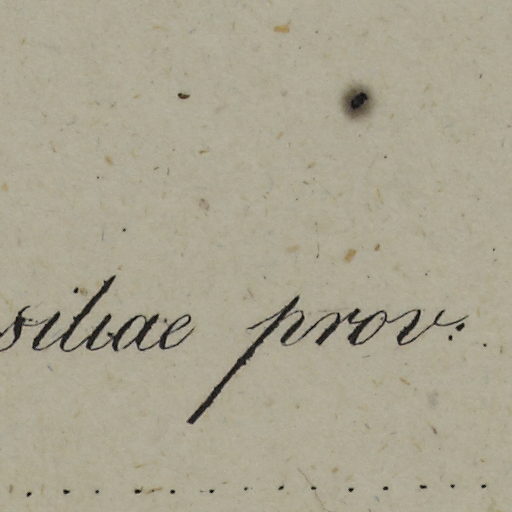 siliae prov: